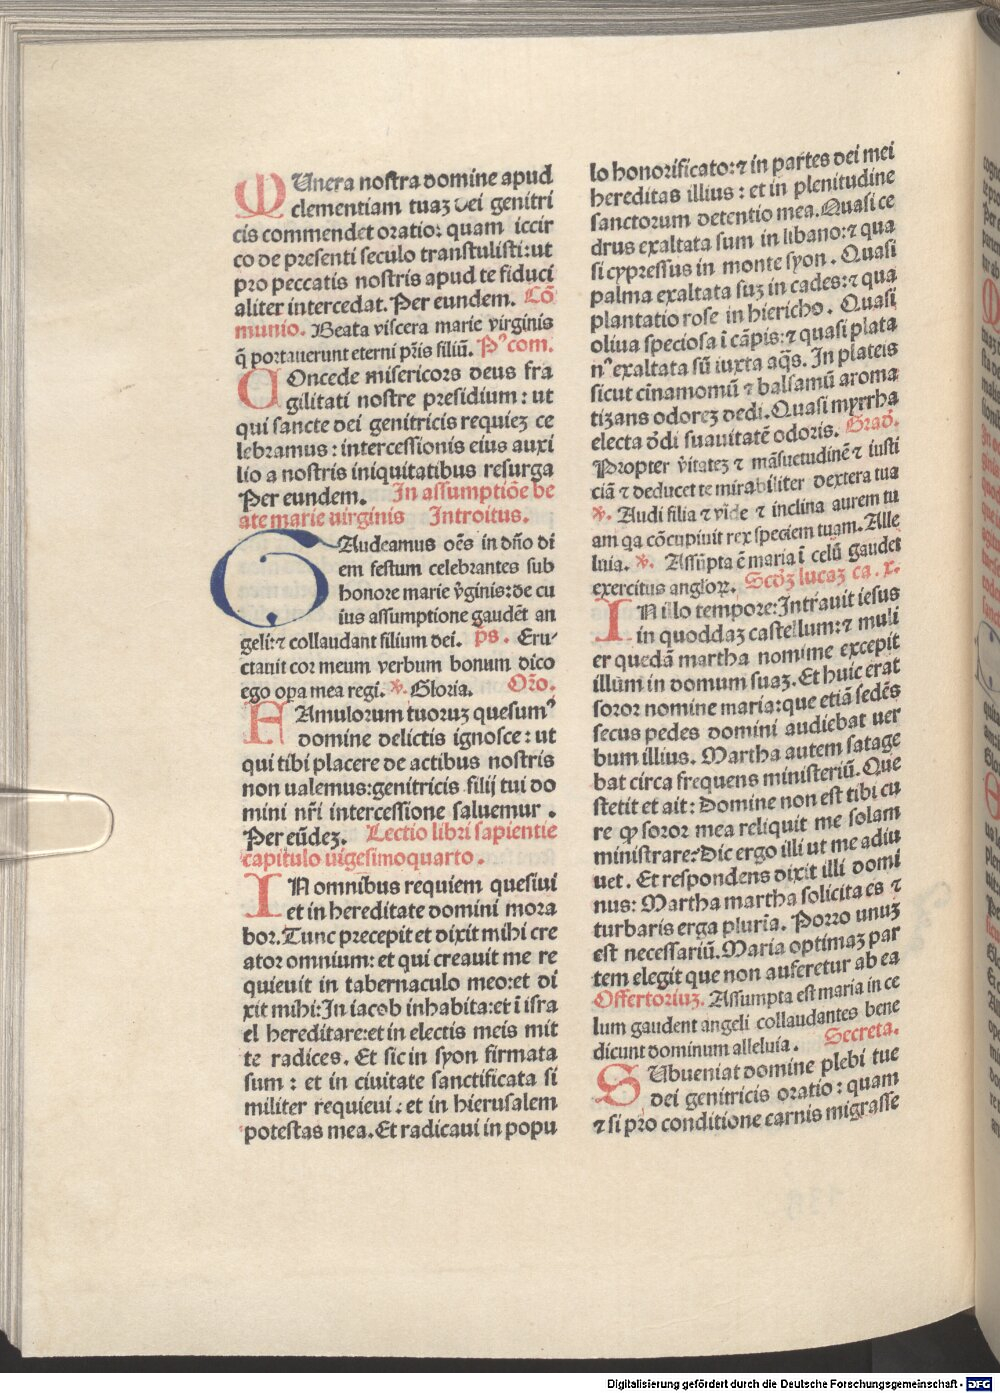 MUnera nostra domine apud
clementiam tuaʒ dei genitri
cis commendet oratio: quam iccir
co de presenti seculo transtulisti: ut
pro peccatis nostris apud te fiduci
aliter intercedat. Per eundem. Cō
munio. Beata viscera marie virginis
q̄ portauerunt eterni pr̄is filiū. Pꝰ com.
COncede misericors deus fra
gilitati nostre presidium: ut
qui sancte dei genitricis requieʒ ce
lebramus: intercessionis eius auxi
lio a nostris iniquitatibus resurga
Per eundem. In assumptiōe be
ate marie uirginis Introitus.
GAudeamus oēs in dn̄o di
em festum celebrantes sub
honore marie v̄ginis: de cu
ius assumptione gaudēt an
geli: ⁊ collaudant filium dei. ps̄. Eru-
ctauit cor meum verbum bonum dico
ego opa mea regi. ℣. Gloria. Or̄o.
FAmulorum tuoruʒ quesumꝰ
domine delictis ignosce: ut
qui tibi placere de actibus nostris
non ualemus: genitricis filij tui do
mini nr̄i intercessione saluemur.
Per eūdeʒ. Lectio libri sapientie
capitulo uigesimoquarto.
IN omnibus requiem quesiui
et in hereditate domini mora
bor. Tunc precepit et dixit mihi cre
ator omnium: et qui creauit me re
quieuit in tabernaculo meo: et di
xit mihi: In iacob inhabita: et ī isra
el hereditare: et in electis meis mit
te radices. Et sic in syon firmata
sum: et in ciuitate sanctificata si
militer requieui: et in hierusalem
potestas mea. Et radicaui in popu
lo honorificato: ⁊ in partes dei mei
hereditas illius: et in plenitudine
sanctorum detentio mea. Quasi ce
drus exaltata sum in libano: ⁊ qua
si cypressus in monte syon. Quasi
palma exaltata suʒ in cades: ⁊ qua
plantatio rose in hiericho. Quasi
oliua speciosa ī cāpis: ⁊ quasi plata
nꝰ exaltata sū iuxta aq̄s. In plateis
sicut cīnamomū ⁊ balsamū aroma
tizans odoreʒ dedi. Quasi myrrha
electa d̄di suauitatē odoris. Grad̄.
Propter v̄itateʒ ⁊ māsuetudinē ⁊ iusti
ciā ⁊ deducet te mirabiliter dextera tua
℣. Audi filia ⁊ vide ⁊ inclina aurem tu
am qa cōcupiuit rex speciem tuam. Alle
luia. ℣. Assūpta ē maria ī celū gaudet
exercitus angloꝝ. Scd̄ʒ lucaʒ ca. x.
IN illo tempore: Intrauit iesus
in quoddaʒ castellum: ⁊ muli
er quedā martha nomime excepit
illum in domum suaʒ. Et huic erat
soror nomine maria: que etiā sedēs
secus pedes domini audiebat uer
bum illius. Martha autem satage
bat circa frequens ministeriū. Que
stetit et ait: Domine non est tibi cu
re ꝙ soror mea reliquit me solam
ministrare: Dic ergo illi ut me adiu
uet. Et respondens dixit illi domi
nus: Martha martha solicita es ⁊
turbaris erga plurīa. Porro unuʒ
est necessariū. Maria optimaʒ par
tem elegit que non auferetur ab ea
Offertoriuʒ. Assumpta est maria in ce
lum gaudent angeli collaudantes bene
dicunt dominum alleluia. Secreta.
SUbueniat domine plebi tue
dei genitricis oratio: quam
⁊ si pro conditione carnis migrasse
Digitalisierung gefördert durch die Deutsche Forschungsgemeinschaft - DFG